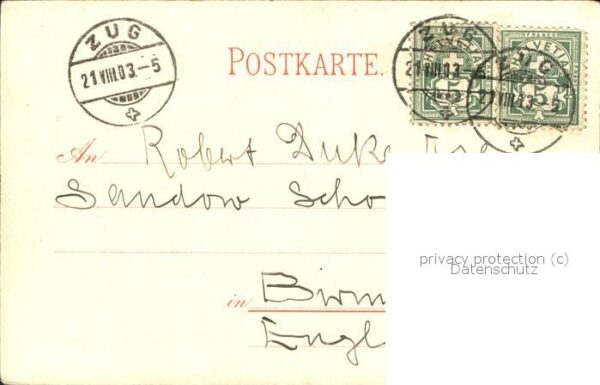 ZUG
21.VIII.03.-5
POSTKARTE.
ZUG
21.VIII.03.
HELVETIA
5
ZUG
21.VIII.03.-5
FRANCO
HELVETIA
5
An Robert Duke
Sandow Scho
privacy protection (c)
Datenschutz
in Birm
Engl